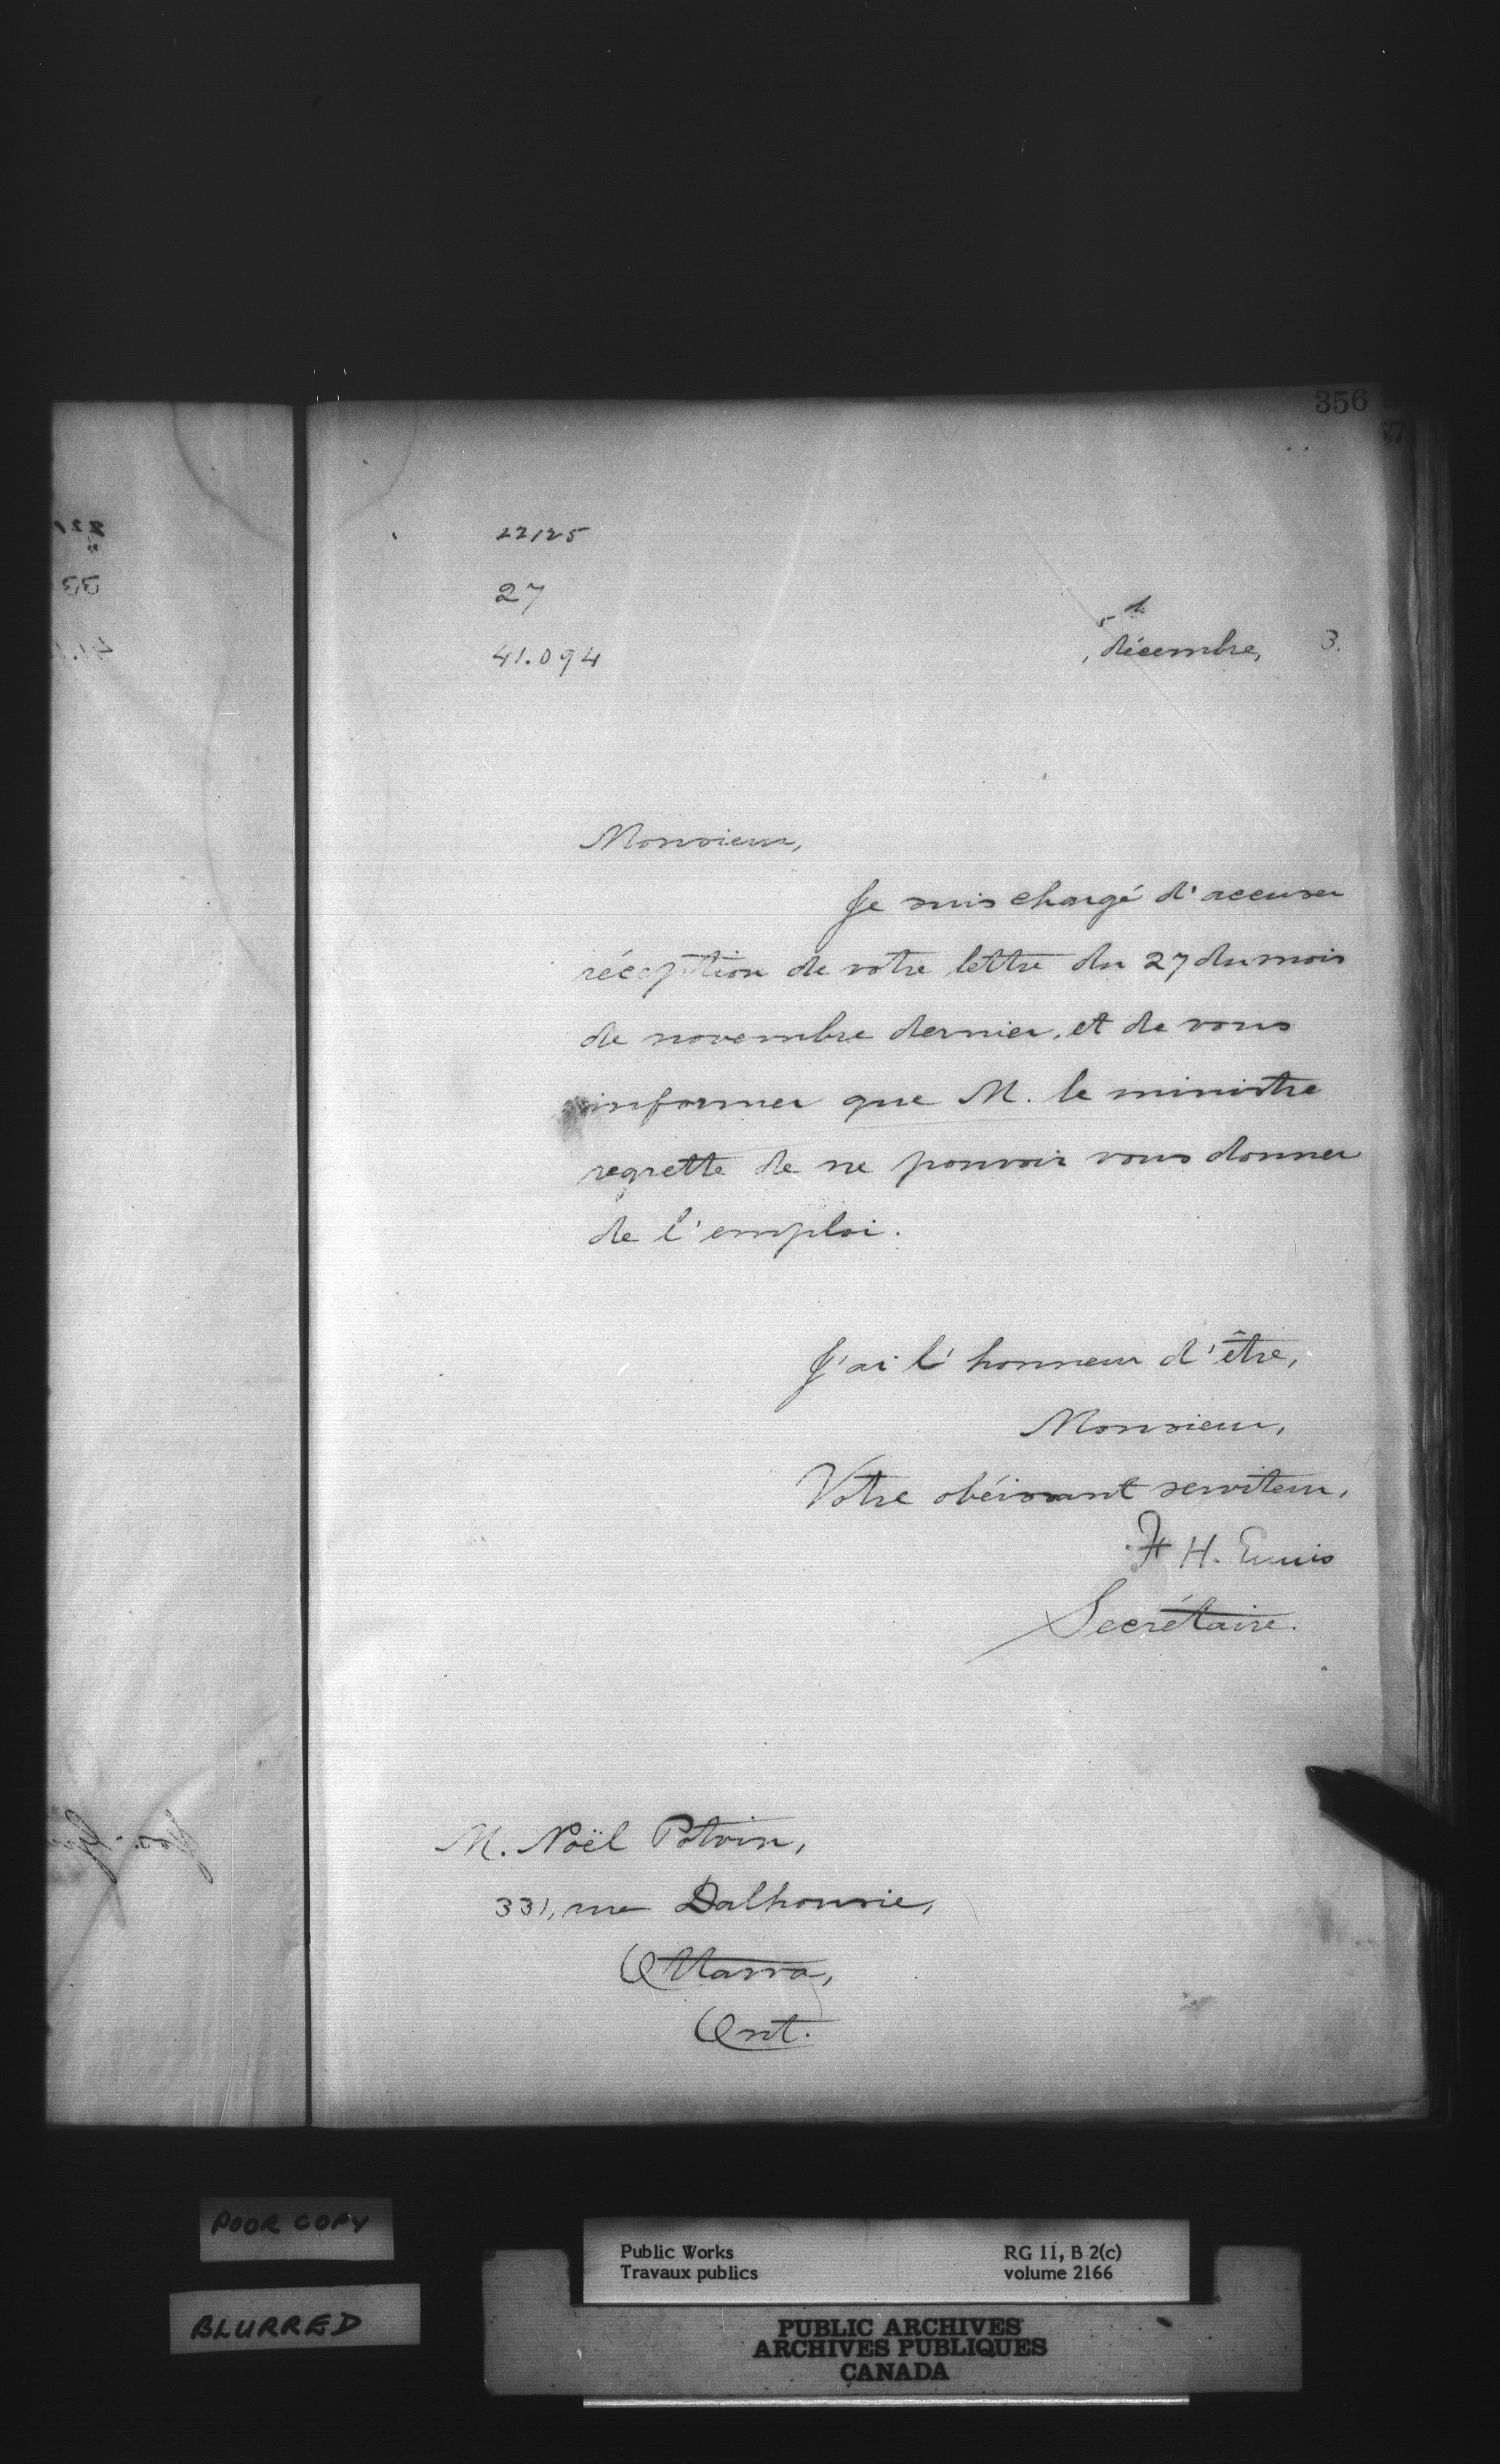 356
22125
27
41.094
5 de
décembre, 3.
Monsieur,
Je suis chargé d'accuser
réception de votre lettre du 27 du mois
de novembre dernier, et de vous
informer que M. le ministre
regrette de ne pouvoir vous donner
de l'emploi.
J'ai l'honneur d'être,
Monsieur,
Votre obéissant serviteur,
F H. Ennis
Secrétaire.
M. Noël Potvin,
331, rue Dalhousie,
Ottawa,
Ont.
POOR COPY
BLURRED
Public Works
Travaux publics
RG 11, B 2(c)
volume 2166
PUBLIC ARCHIVES
ARCHIVES PUBLIQUES
CANADA